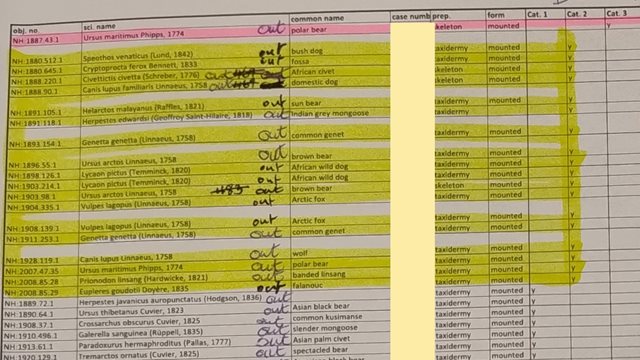 obj. no. sci. name common name case numb prep. form Cat. 1 Cat. 2 Cat. 3
NH.1887.43.1 Ursus maritimus Phipps, 1774 out polar bear skeleton mounted y
NH.1880.512.1 Speothos venaticus (Lund, 1842) out bush dog taxidermy mounted y
NH.1880.645.1 Cryptoprocta ferox Bennett, 1833 out fossa taxidermy mounted y
NH.1888.220.1 Civettictis civetta (Schreber, 1776) out African civet skeleton mounted y
NH.1888.90.1 Canis lupus familiaris Linnaeus, 1758 out domestic dog taxidermy mounted y
NH.1891.105.1 Helarctos malayanus (Raffles, 1821) out sun bear taxidermy mounted y
NH.1891.118.1 Herpestes edwardsi (Geoffroy Saint-Hilaire, 1818) out Indian grey mongoose taxidermy mounted y
NH.1893.154.1 Genetta genetta (Linnaeus, 1758) out common genet taxidermy mounted y
NH.1896.55.1 Ursus arctos Linnaeus, 1758 out brown bear taxidermy mounted y
NH.1898.126.1 Lycaon pictus (Temminck, 1820) out African wild dog taxidermy mounted y
NH.1903.214.1 Lycaon pictus (Temminck, 1820) out African wild dog taxidermy mounted y
NH.1903.98.1 Ursus arctos Linnaeus, 1758 out brown bear skeleton mounted y
NH.1904.335.1 Vulpes lagopus (Linnaeus, 1758) out Arctic fox taxidermy mounted y
NH.1908.139.1 Vulpes lagopus (Linnaeus, 1758) out Arctic fox taxidermy mounted y
NH.1911.253.1 Genetta genetta (Linnaeus, 1758) out common genet taxidermy mounted y
NH.1928.119.1 Canis lupus Linnaeus, 1758 out wolf taxidermy mounted y
NH.2007.47.35 Ursus maritimus Phipps, 1774 out polar bear taxidermy mounted y
NH.2008.85.28 Prionodon linsang (Hardwicke, 1821) out banded linsang taxidermy mounted y
NH.2008.85.29 Eupleres goudotii Doyère, 1835 out falanouc taxidermy mounted y
NH.1889.72.1 Herpestes javanicus auropunctatus (Hodgson, 1836) out taxidermy mounted y
NH.1890.64.1 Ursus thibetanus Cuvier, 1823 out Asian black bear taxidermy mounted y
NH.1908.37.1 Crossarchus obscurus Cuvier, 1825 out common kusimanse taxidermy mounted y
NH.1910.496.1 Galerella sanguinea (Rüppell, 1835) out slender mongoose taxidermy mounted y
NH.1913.61.1 Paradoxurus hermaphroditus (Pallas, 1777) out Asian palm civet taxidermy mounted y
NH.1920.129.1 Tremarctos ornatus (Cuvier, 1825) out spectacled bear taxidermy mounted y